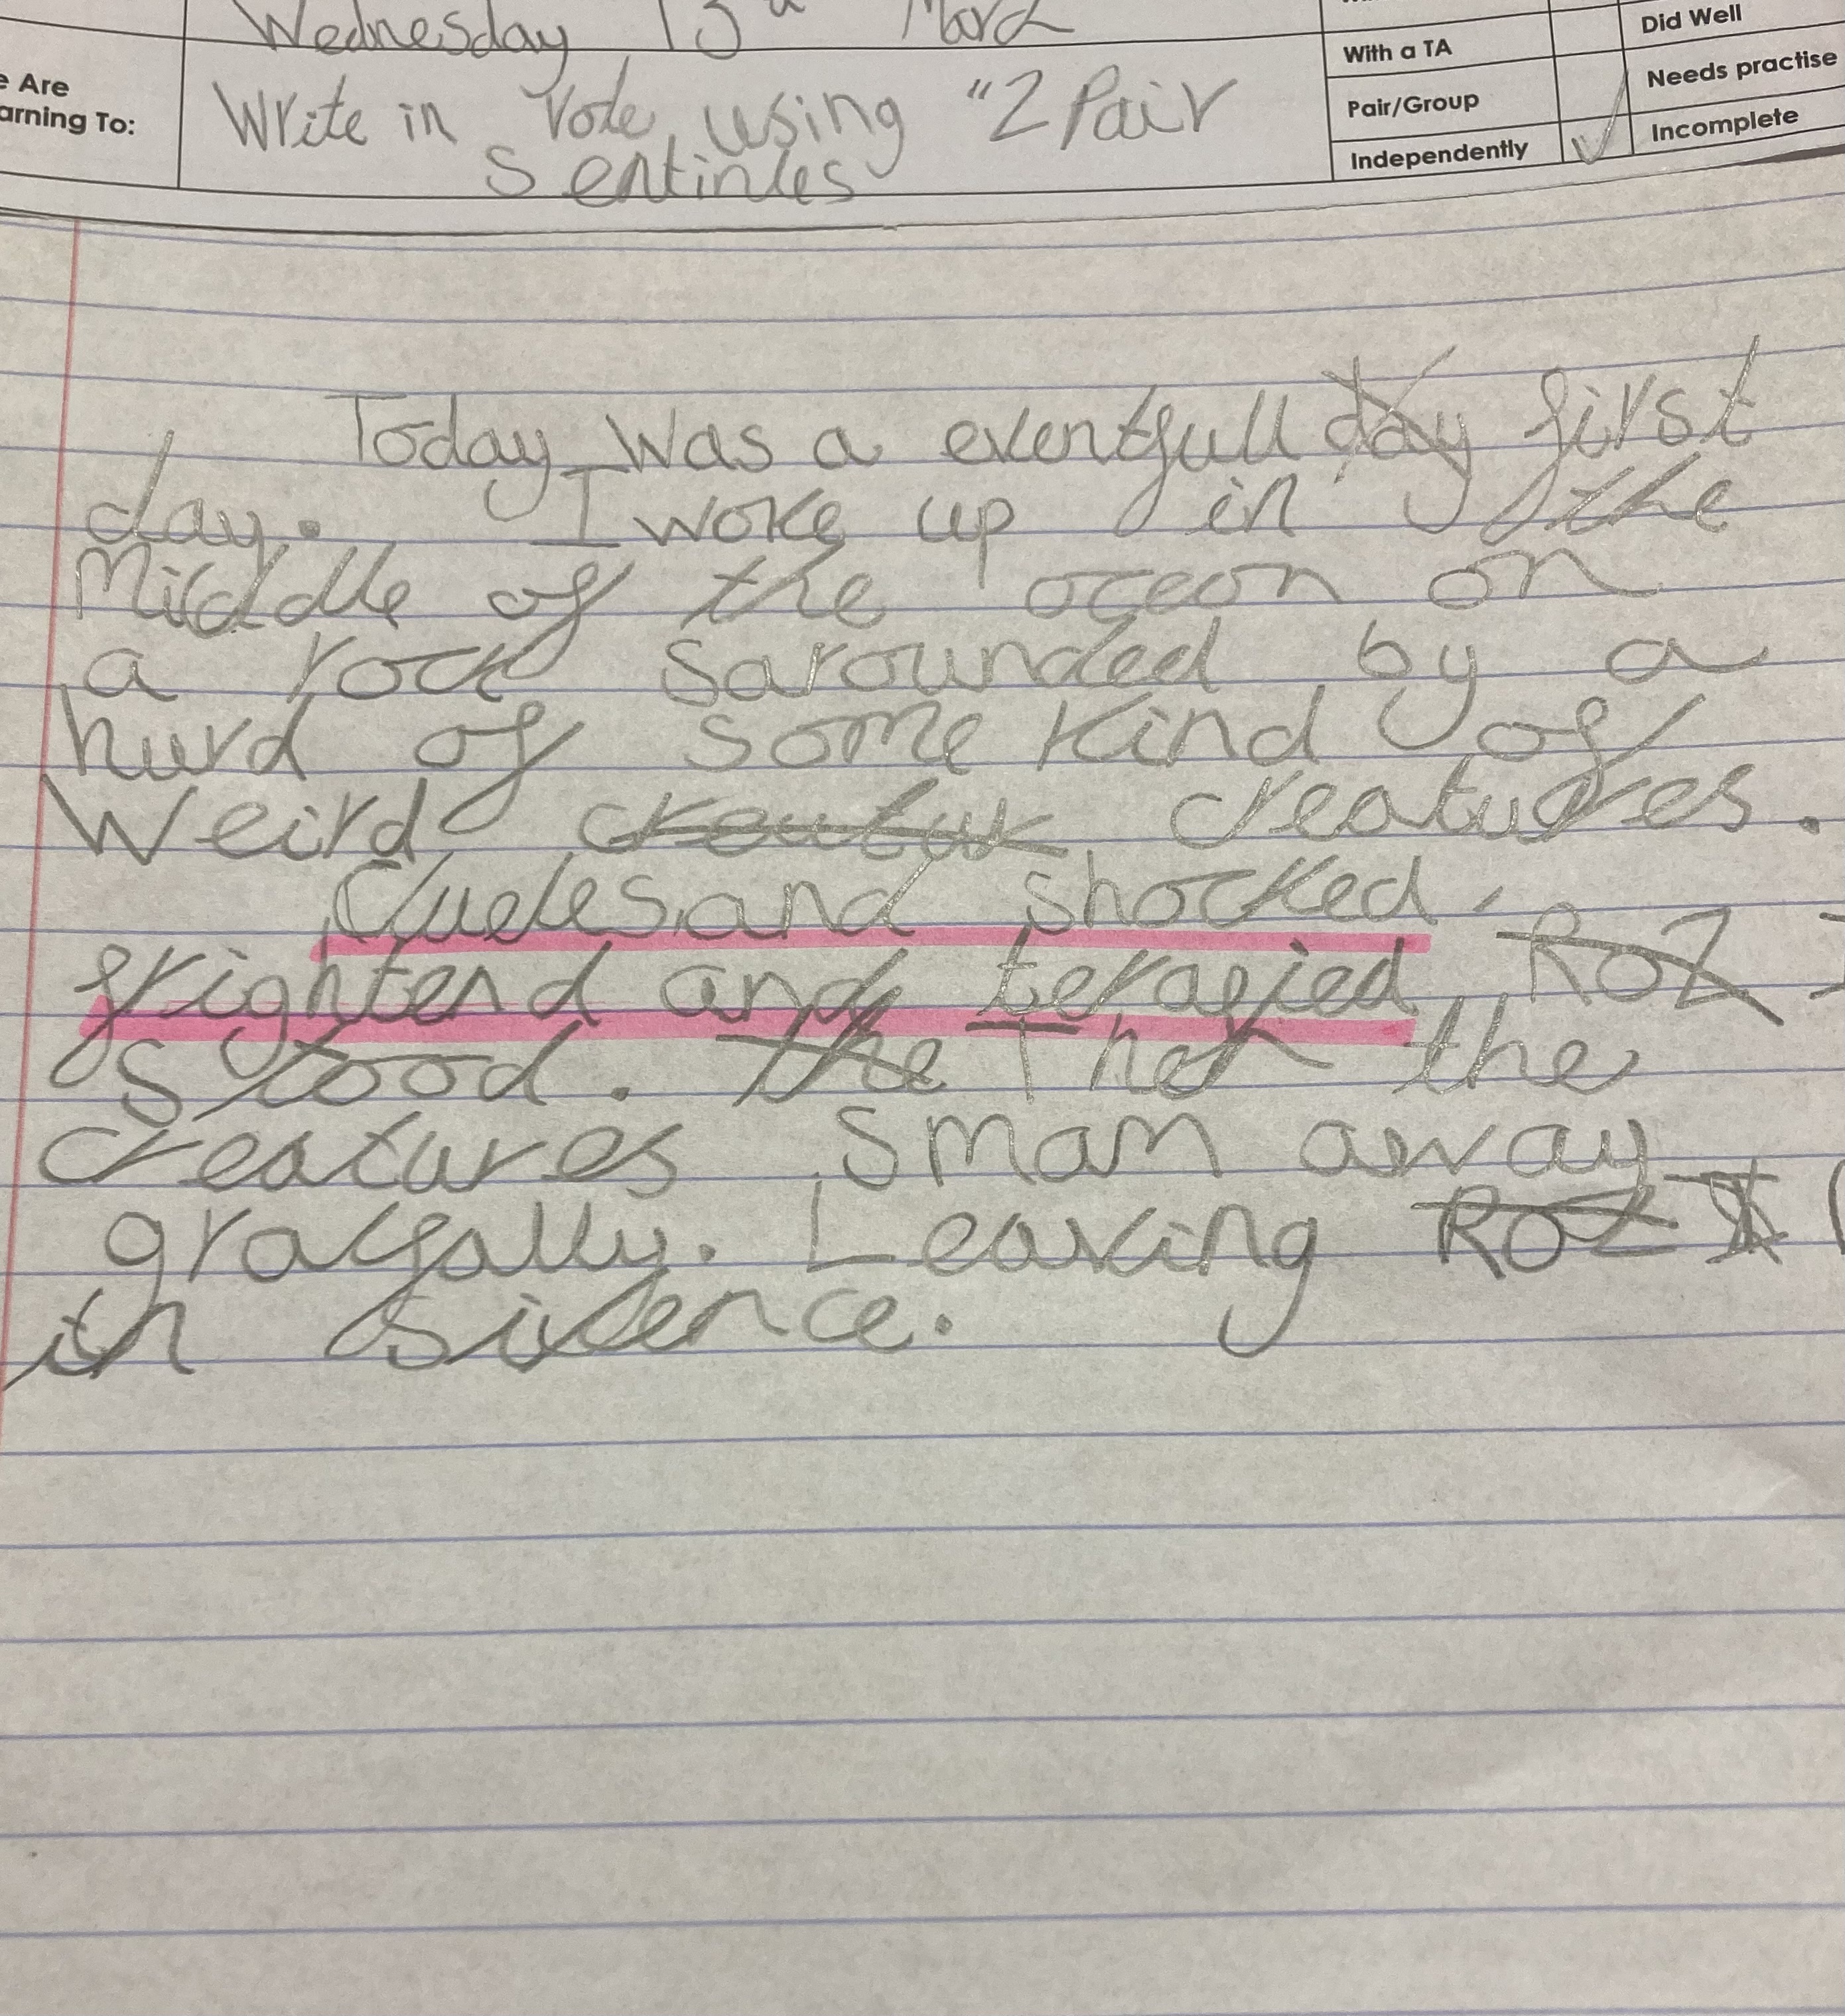 Wednesday 13th March
Did Well
With a TA
e Are
arning To:
Write in role, using "2 Pair
Needs practise
Pair/Group
Sentinles
Incomplete
Independently
Today was a eventfull day first
day. I woke up in the
Middle of the ocean on
a rock sarounded by a
hurd of some kind of
Weird creatures.
Clueles and shocked,
frightend and terafied, ROZ
stood. the Then the
creatures smam away
gracfally. Leaving ROZ
in silence.